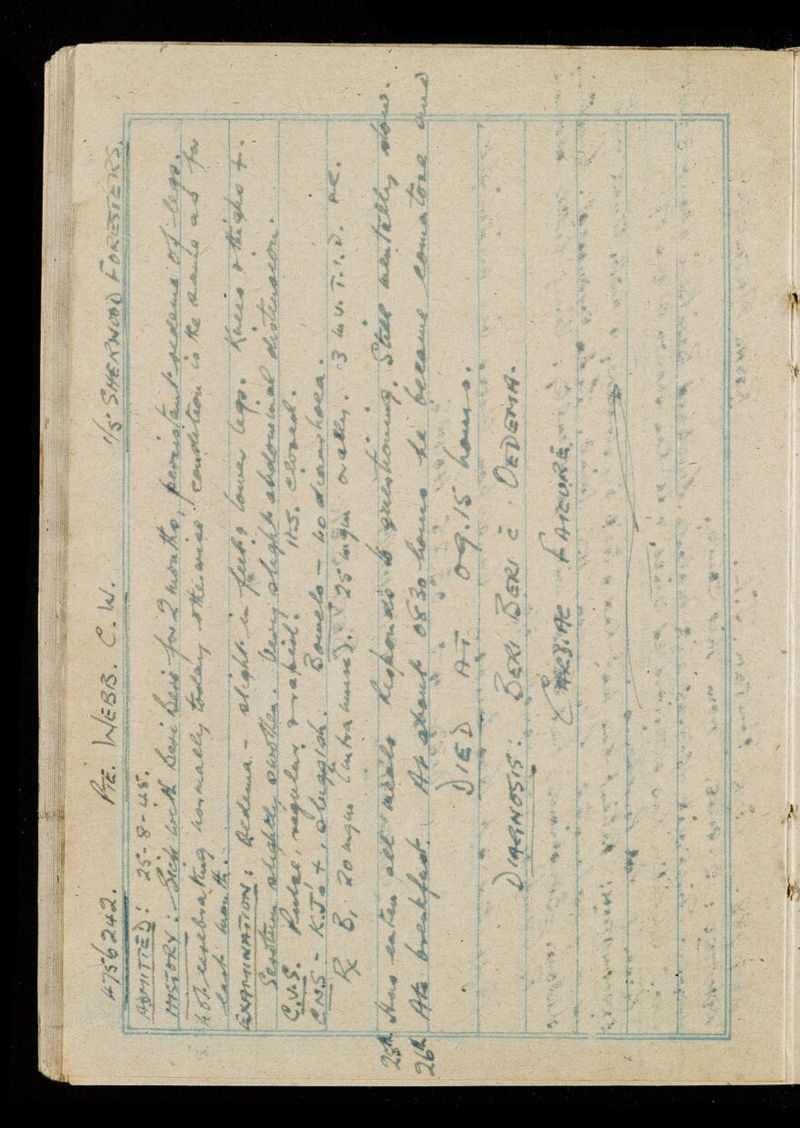 4756242. Pte. WEBB. C. W. 1/5 SHERWOOD FORESTERS.
ADMITTED: 25-8-45.
HISTORY: Sick with Beri Beri for 2 months, persistent oedema of legs.
Not urebrating normally today otherwise condition is the same as for
last month.
EXAMINATION: Oedema - slight in feet & lower legs. Knees & thighs +.
Scrotum slightly swollen. Very slight abdominal distension.
C.V.S. Pulse, regular, rapid. H.S. closed.
C.N.S - K.J's +, sluggish. Bowels - no diarrhoea.
Rx B, 20 mgm (intra musc). 25 mgm orally. 3 T.I.D. AC.
25th Has eaten all meals. Responds to questioning. Still mentally slow.
26th Ate breakfast. At about 0830 hours he became comatose and
DIED AT 09.15 hours.
DIAGNOSIS: BERI BERI c̄ OEDEMA.
CARDIAC FAILURE